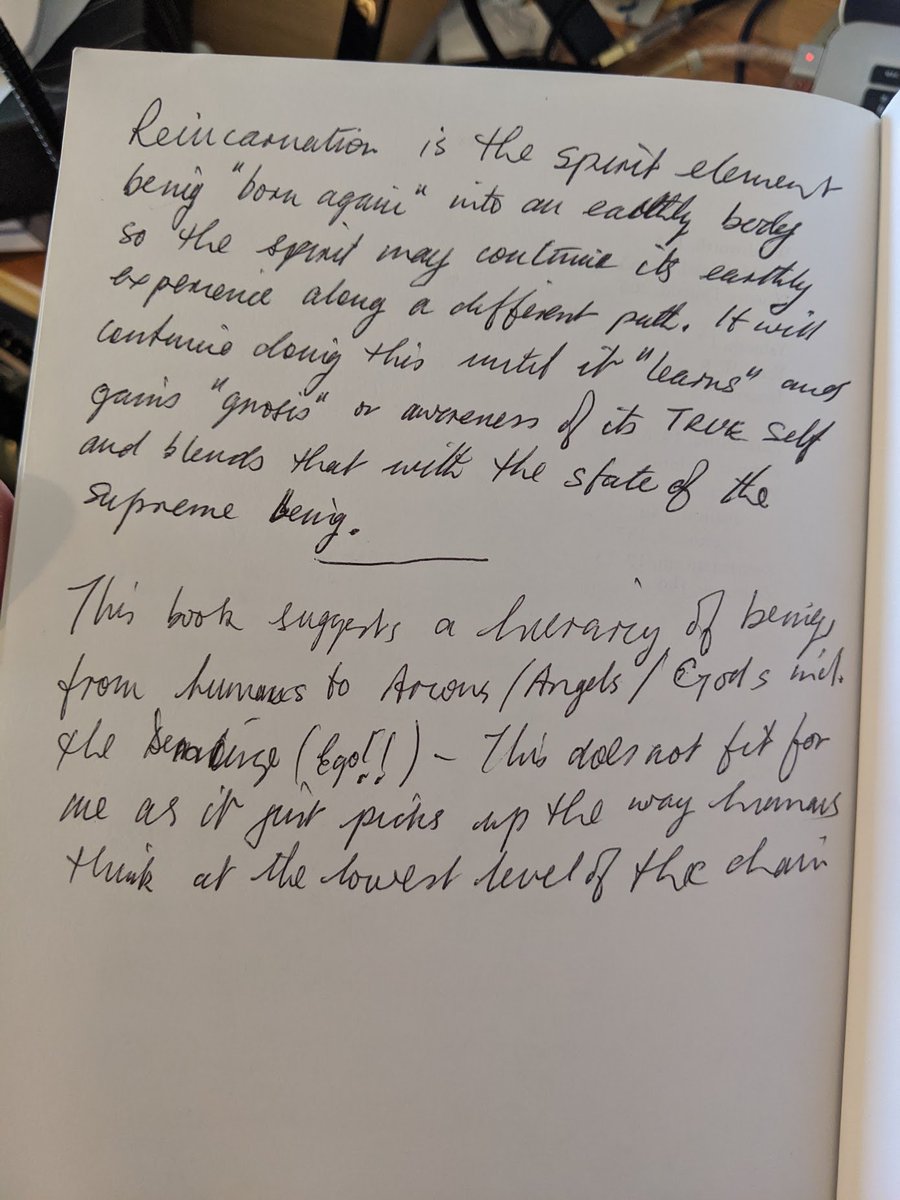 Reincarnation is the spirit element
being "born again" into an earthly body
so the spirit may continue its earthly
experience along a different path. It will
continue doing this until it "learns" and
gains "gnosis" or awareness of its TRUE self
and blends that with the state of the
supreme being.
This book suggests a hierarcy of beings
from humans to Arcons/Angels/Gods incl.
the (Ego!!) - This does not fit for
me as it just picks up the way humans
think at the lowest level of the chain